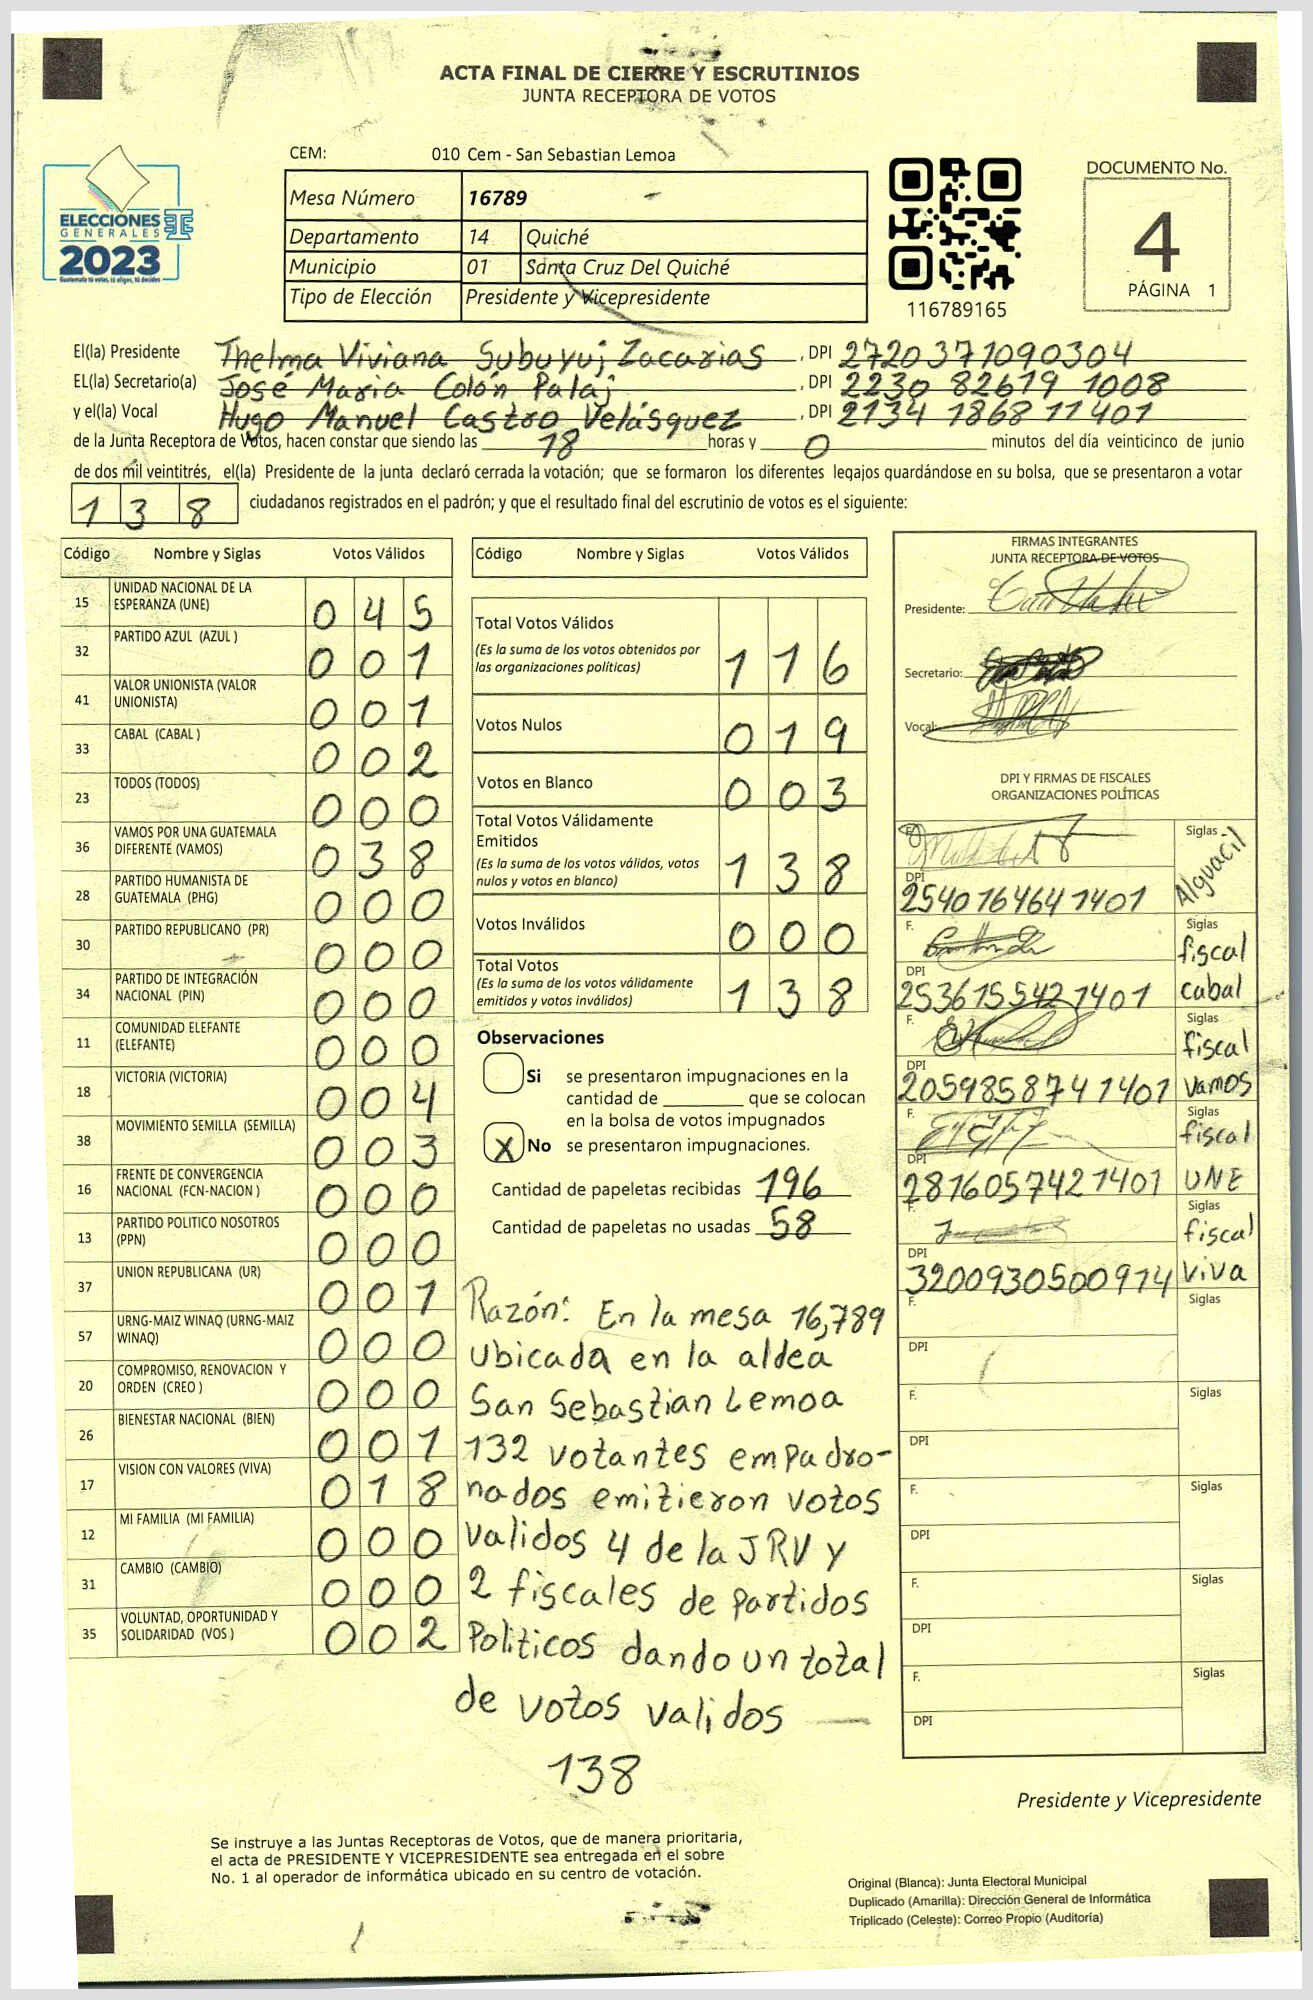 ACTA FINAL DE CIERRE Y ESCRUTINIOS
JUNTA RECEPTORA DE VOTOS
ELECCIONES
GENERALES
2023
CEM: 010 Cem - San Sebastian Lemoa
Mesa Número 16789
Departamento 14 Quiché
Municipio 01 Santa Cruz Del Quiché
Tipo de Elección Presidente y Vicepresidente
116789165
DOCUMENTO No.
4
PÁGINA 1
El(la) Presidente Thelma Viviana Subuyuj Zacarias , DPI 2720371090304
EL(la) Secretario(a) José Maria Colón Palaj , DPI 2230 82619 1008
y el(la) Vocal Hugo Manuel Castro Velásquez , DPI 2134 1868 11401
de la Junta Receptora de Votos, hacen constar que siendo las 18 horas y 0 minutos del día veinticinco de junio
de dos mil veintitrés, el(la) Presidente de la junta declaró cerrada la votación; que se formaron los diferentes legajos guardándose en su bolsa, que se presentaron a votar
138 ciudadanos registrados en el padrón; y que el resultado final del escrutinio de votos es el siguiente:
Código Nombre y Siglas Votos Válidos
15 UNIDAD NACIONAL DE LA
ESPERANZA (UNE) 045
32 PARTIDO AZUL (AZUL ) 001
41 VALOR UNIONISTA (VALOR
UNIONISTA) 001
33 CABAL (CABAL ) 002
23 TODOS (TODOS) 000
36 VAMOS POR UNA GUATEMALA
DIFERENTE (VAMOS) 038
28 PARTIDO HUMANISTA DE
GUATEMALA (PHG) 000
30 PARTIDO REPUBLICANO (PR) 000
34 PARTIDO DE INTEGRACIÓN
NACIONAL (PIN) 000
11 COMUNIDAD ELEFANTE
(ELEFANTE) 000
18 VICTORIA (VICTORIA) 004
38 MOVIMIENTO SEMILLA (SEMILLA) 003
16 FRENTE DE CONVERGENCIA
NACIONAL (FCN-NACION ) 000
13 PARTIDO POLITICO NOSOTROS
(PPN) 000
37 UNION REPUBLICANA (UR) 001
57 URNG-MAIZ WINAQ (URNG-MAIZ
WINAQ) 000
20 COMPROMISO, RENOVACION Y
ORDEN (CREO ) 000
26 BIENESTAR NACIONAL (BIEN) 001
17 VISION CON VALORES (VIVA) 018
12 MI FAMILIA (MI FAMILIA) 000
31 CAMBIO (CAMBIO) 000
35 VOLUNTAD, OPORTUNIDAD Y
SOLIDARIDAD (VOS ) 002
Código Nombre y Siglas Votos Válidos
Total Votos Válidos
(Es la suma de los votos obtenidos por
las organizaciones políticas) 116
Votos Nulos 019
Votos en Blanco 003
Total Votos Válidamente
Emitidos
(Es la suma de los votos válidos, votos
nulos y votos en blanco) 138
Votos Inválidos 000
Total Votos
(Es la suma de los votos válidamente
emitidos y votos inválidos) 138
Observaciones
Si se presentaron impugnaciones en la
cantidad de ________ que se colocan
en la bolsa de votos impugnados
X No se presentaron impugnaciones.
Cantidad de papeletas recibidas 196
Cantidad de papeletas no usadas 58
Razón: En la mesa 16,789
ubicada en la aldea
San Sebastian Lemoa
132 votantes empadro-
nados emitieron votos
validos 4 de la JRV y
2 fiscales de Partidos
Politicos dando un total
de votos validos —
138
FIRMAS INTEGRANTES
JUNTA RECEPTORA DE VOTOS
Presidente:
Secretario:
Vocal:
DPI Y FIRMAS DE FISCALES
ORGANIZACIONES POLÍTICAS
F. Siglas
DPI 2540164641401 Alguacil
F. Siglas
fiscal
DPI 2536155421401 cabal
F. Siglas
fiscal
DPI 2059858741401 vamos
F. Siglas
fiscal
DPI 2816057421401 UNE
F. Siglas
fiscal
DPI 3200930500914 viva
F. Siglas
DPI
F. Siglas
DPI
F. Siglas
DPI
F. Siglas
DPI
F. Siglas
DPI
Presidente y Vicepresidente
Se instruye a las Juntas Receptoras de Votos, que de manera prioritaria,
el acta de PRESIDENTE Y VICEPRESIDENTE sea entregada en el sobre
No. 1 al operador de informática ubicado en su centro de votación.
Original (Blanca): Junta Electoral Municipal
Duplicado (Amarilla): Dirección General de Informática
Triplicado (Celeste): Correo Propio (Auditoría)